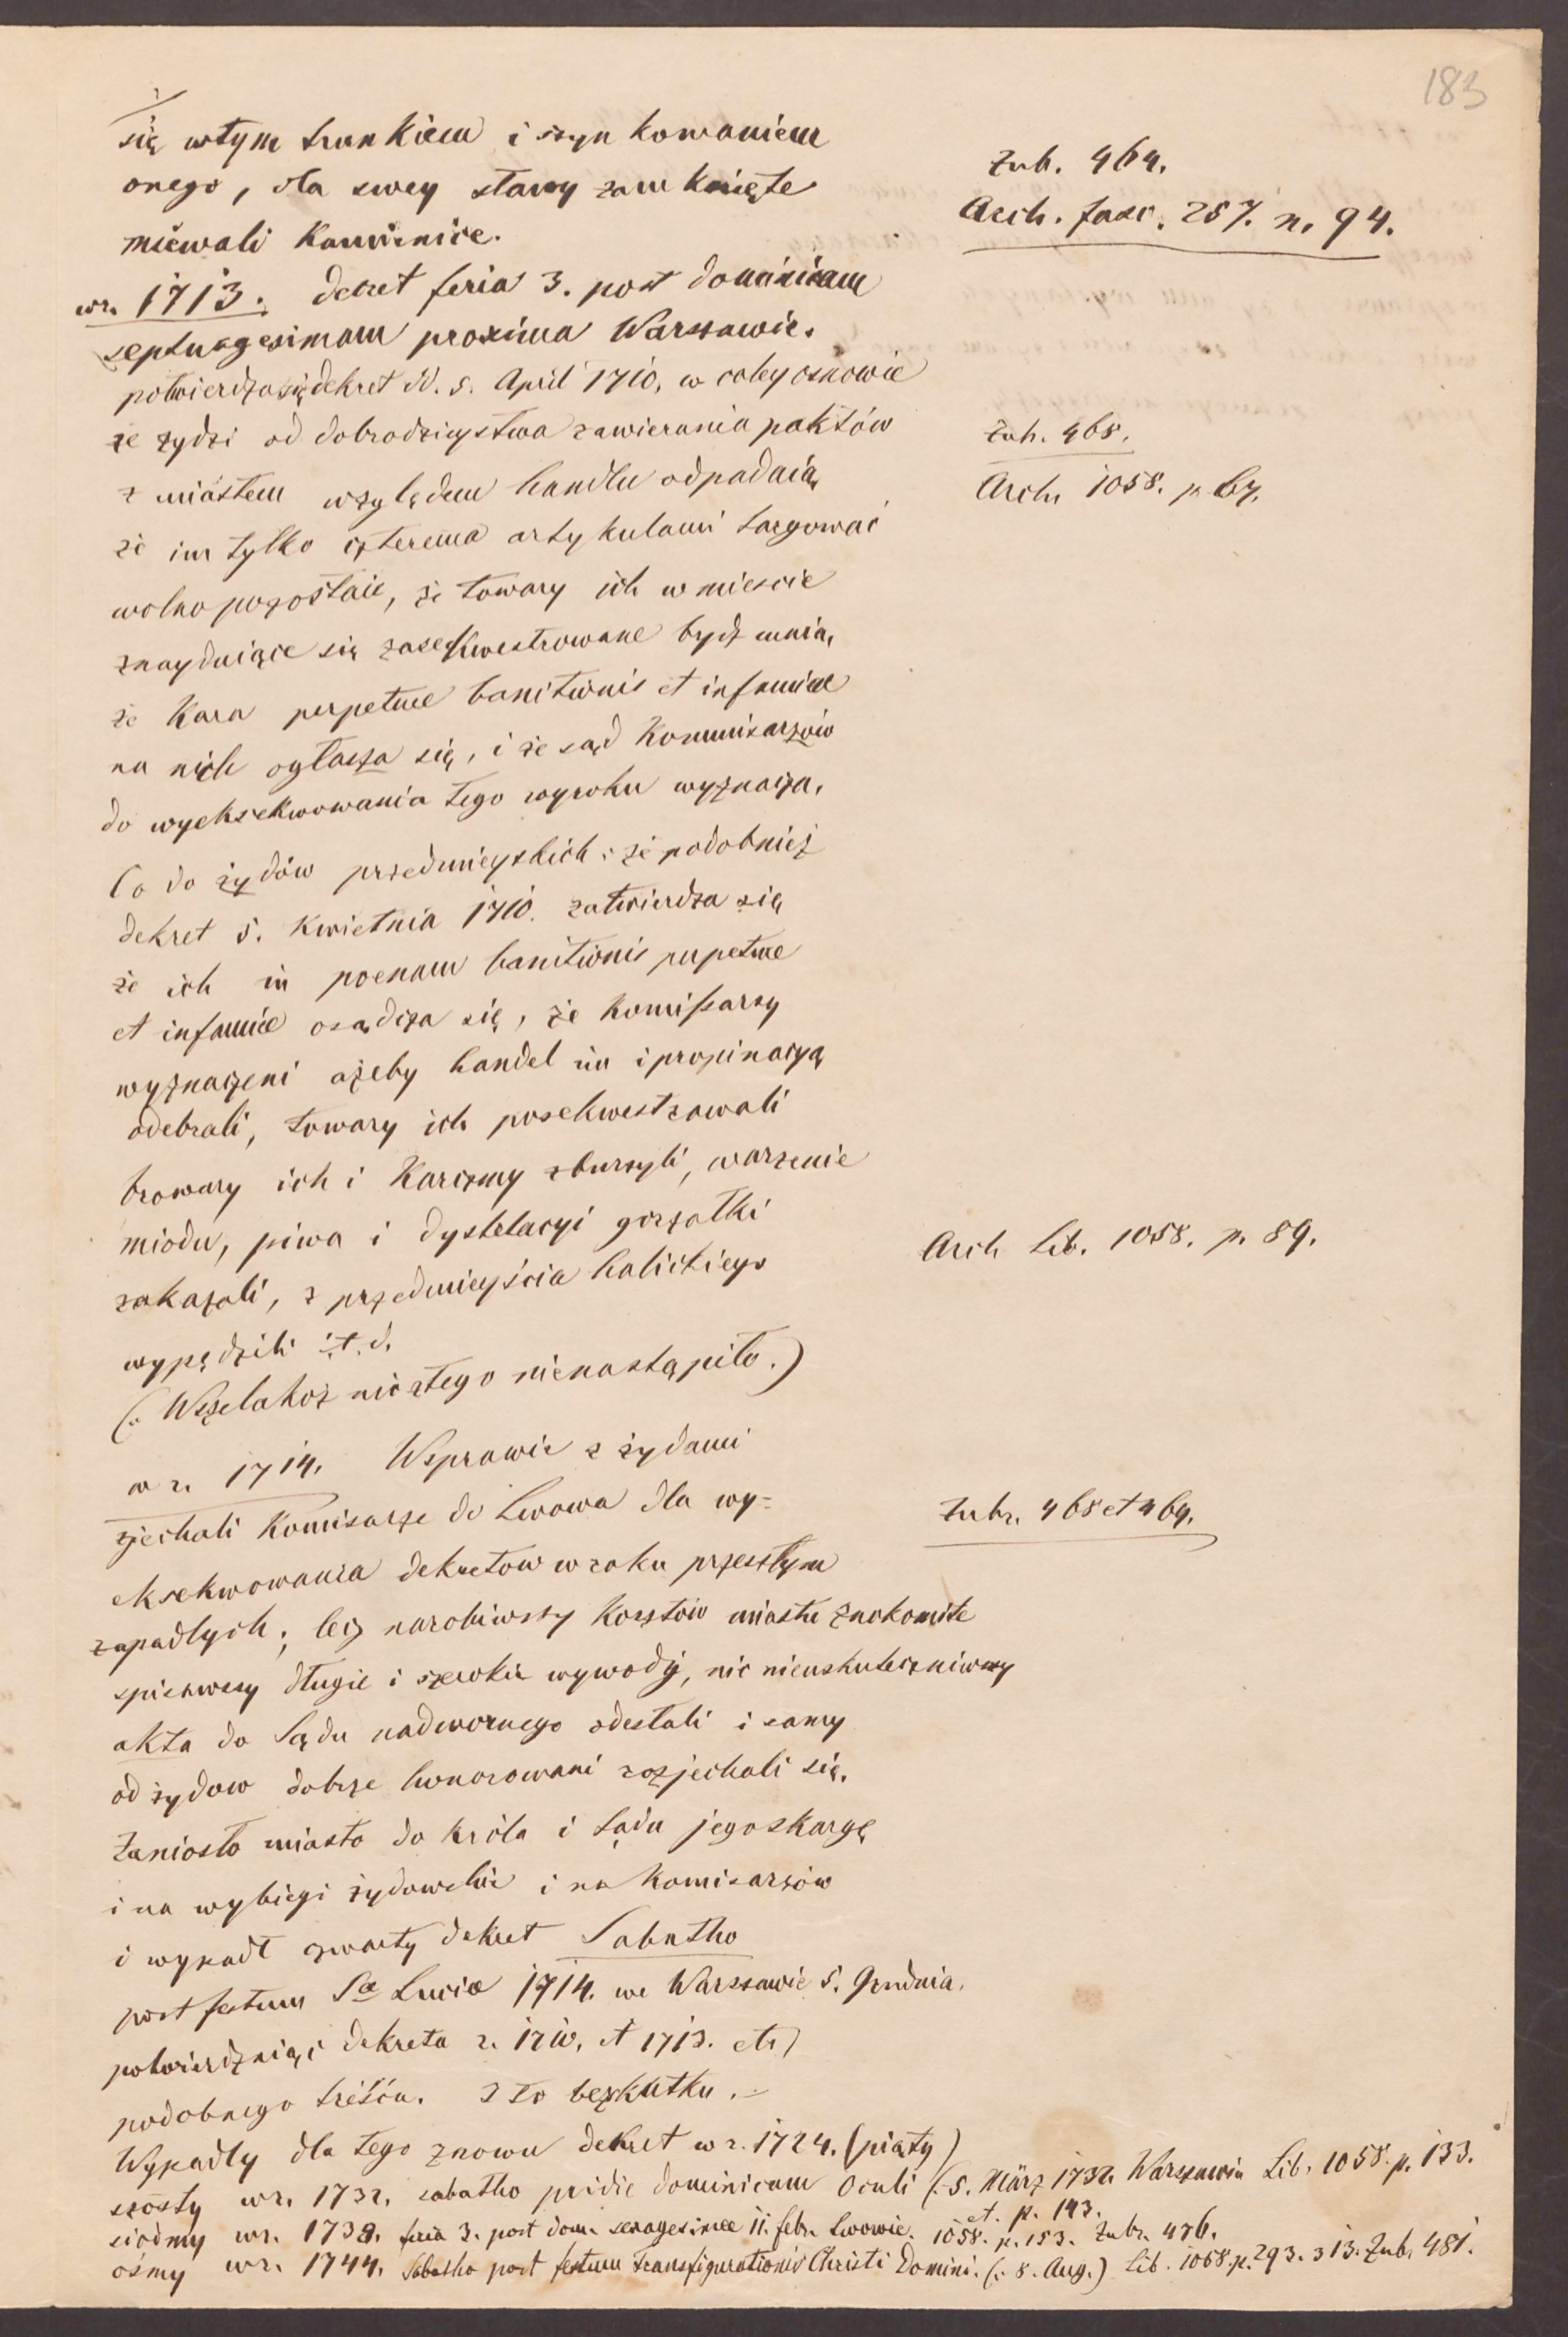 183
się wtym trunkiem i szynkowaniem
onego, dla swey stawy zamknięte
miewali Kamienice.
Zub. 464.
Arch. fasc. 257. n. 94.
wr. 1713. Dekret feria 3. post dominicam
septuagesimam proxima Warszawie.
potwierdza się dekret dd. 5. April 1710, w całey osnowie
że żydzi od dobrodzieystwa zawierania paktów
z miastem względem handlu odpadaią,
że im tylko czterema artykulami targować
wolno pozostaie, że towary ich w mieście
znayduiące się zasekwestrowane bydź maią,
że Kara perpetuae banitionis et infamiae
na nich ogłasza się, i że sąd Kommisarzów
do wyeksekwowania tego wyroku wyznacza.
Zub. 468.
Arch. 1058. p. 67.
Co do żydów przedmieyskich: że podobnież
dekret 5. Kwietnia 1710. zatwierdza się
że ich in poenam banitionis perpetuae
et infamiae osądza się, że Komissarzy
wyznaczeni ażeby handel im i propinacyą
odebrali, towary ich posekwestrowali
browary ich i Karczmy zburzyli, warzenie
miodu, piwa i dystelacyi gorzałki
zakazali, z przedmieyścia halickiego
wypędzili i.t.d.
Arch Lib. 1058. p. 89.
(: Wszelakoż nic ztego nienastąpiło.)
w r. 1714. Wsprawie z żydami
zjechali Komisarze do Lwowa dla wy=
eksekwowania dekretów w roku przeszłym
zapadłych; lecz narobiwszy Kosztów miastu znakomite
spisawszy długie i szerokie wywody, nic nieuskuteczniwszy
akta do Sądu nadwornego odesłali i samy
od żydow dobrze honorowani rozjechali się.
Zubr. 468 et 469.
Zaniosło miasto do Króla i Sądu jego skargę
i na wybiegi żydowskie i na Komisarzów
i wypadł czwarty dekret Sabatho
post festum Sae Luciae 1714. we Warszawie 5. Grudnia.
potwierdzaiąci dekreta r. 1710. et 1713. etc)
podobnego treścia. I to bezskutku.
Wypadły dla tego znowu dekret w r. 1724. (piąty)
szósty wr. 1732. sabatho pridie dominicam Oculi (: 5. März 1732. Warszawia Lib. 1058. p. 133.
et. p. 143.
siódmy wr. 1738. feria 3. post dom. sexagesimae 11. febr. Lwowie. 1058. p. 153. Zubr. 476.
ósmy wr. 1744. Sabatho post festum Transfigurationis Christi Domini. (: 8. Aug.) Lib. 1068. p. 293. 313. Zub. 481.